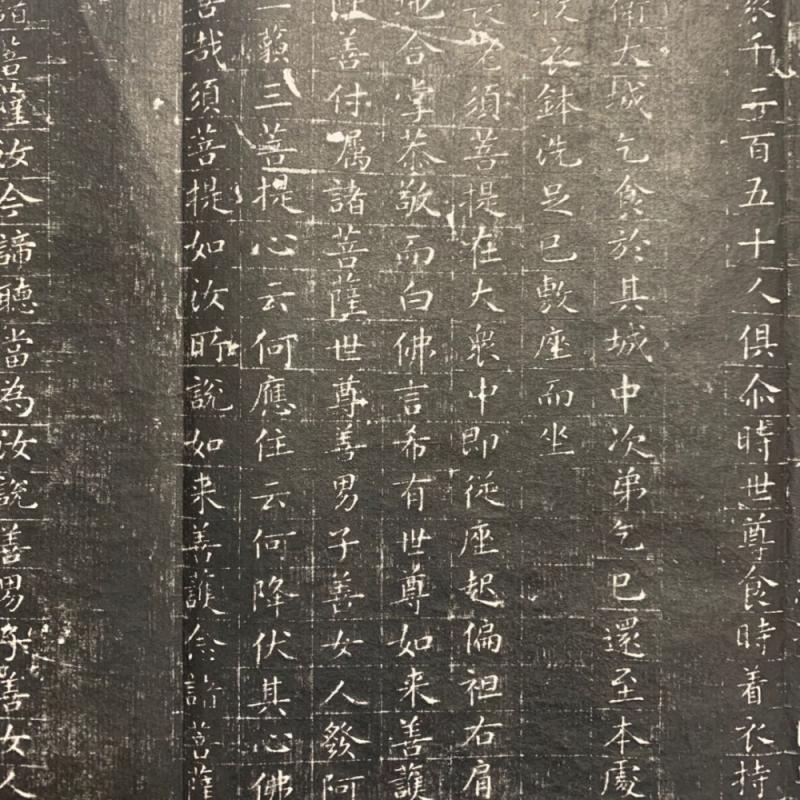 衆千二百五十人俱尒時世尊食時着衣持
衛大城乞食於其城中次弟乞已還至本處
衣鉢洗足已敷座而坐
老須菩提在大衆中即從座起偏袒右肩
地合掌恭敬而白佛言希有世尊如来善護
善付属諸菩薩世尊善男子善女人發阿
藐三菩提心云何應住云何降伏其心佛
善哉須菩提如汝所說如来善護念諸菩薩
諸菩薩汝今諦聽當為汝說善男子善女人